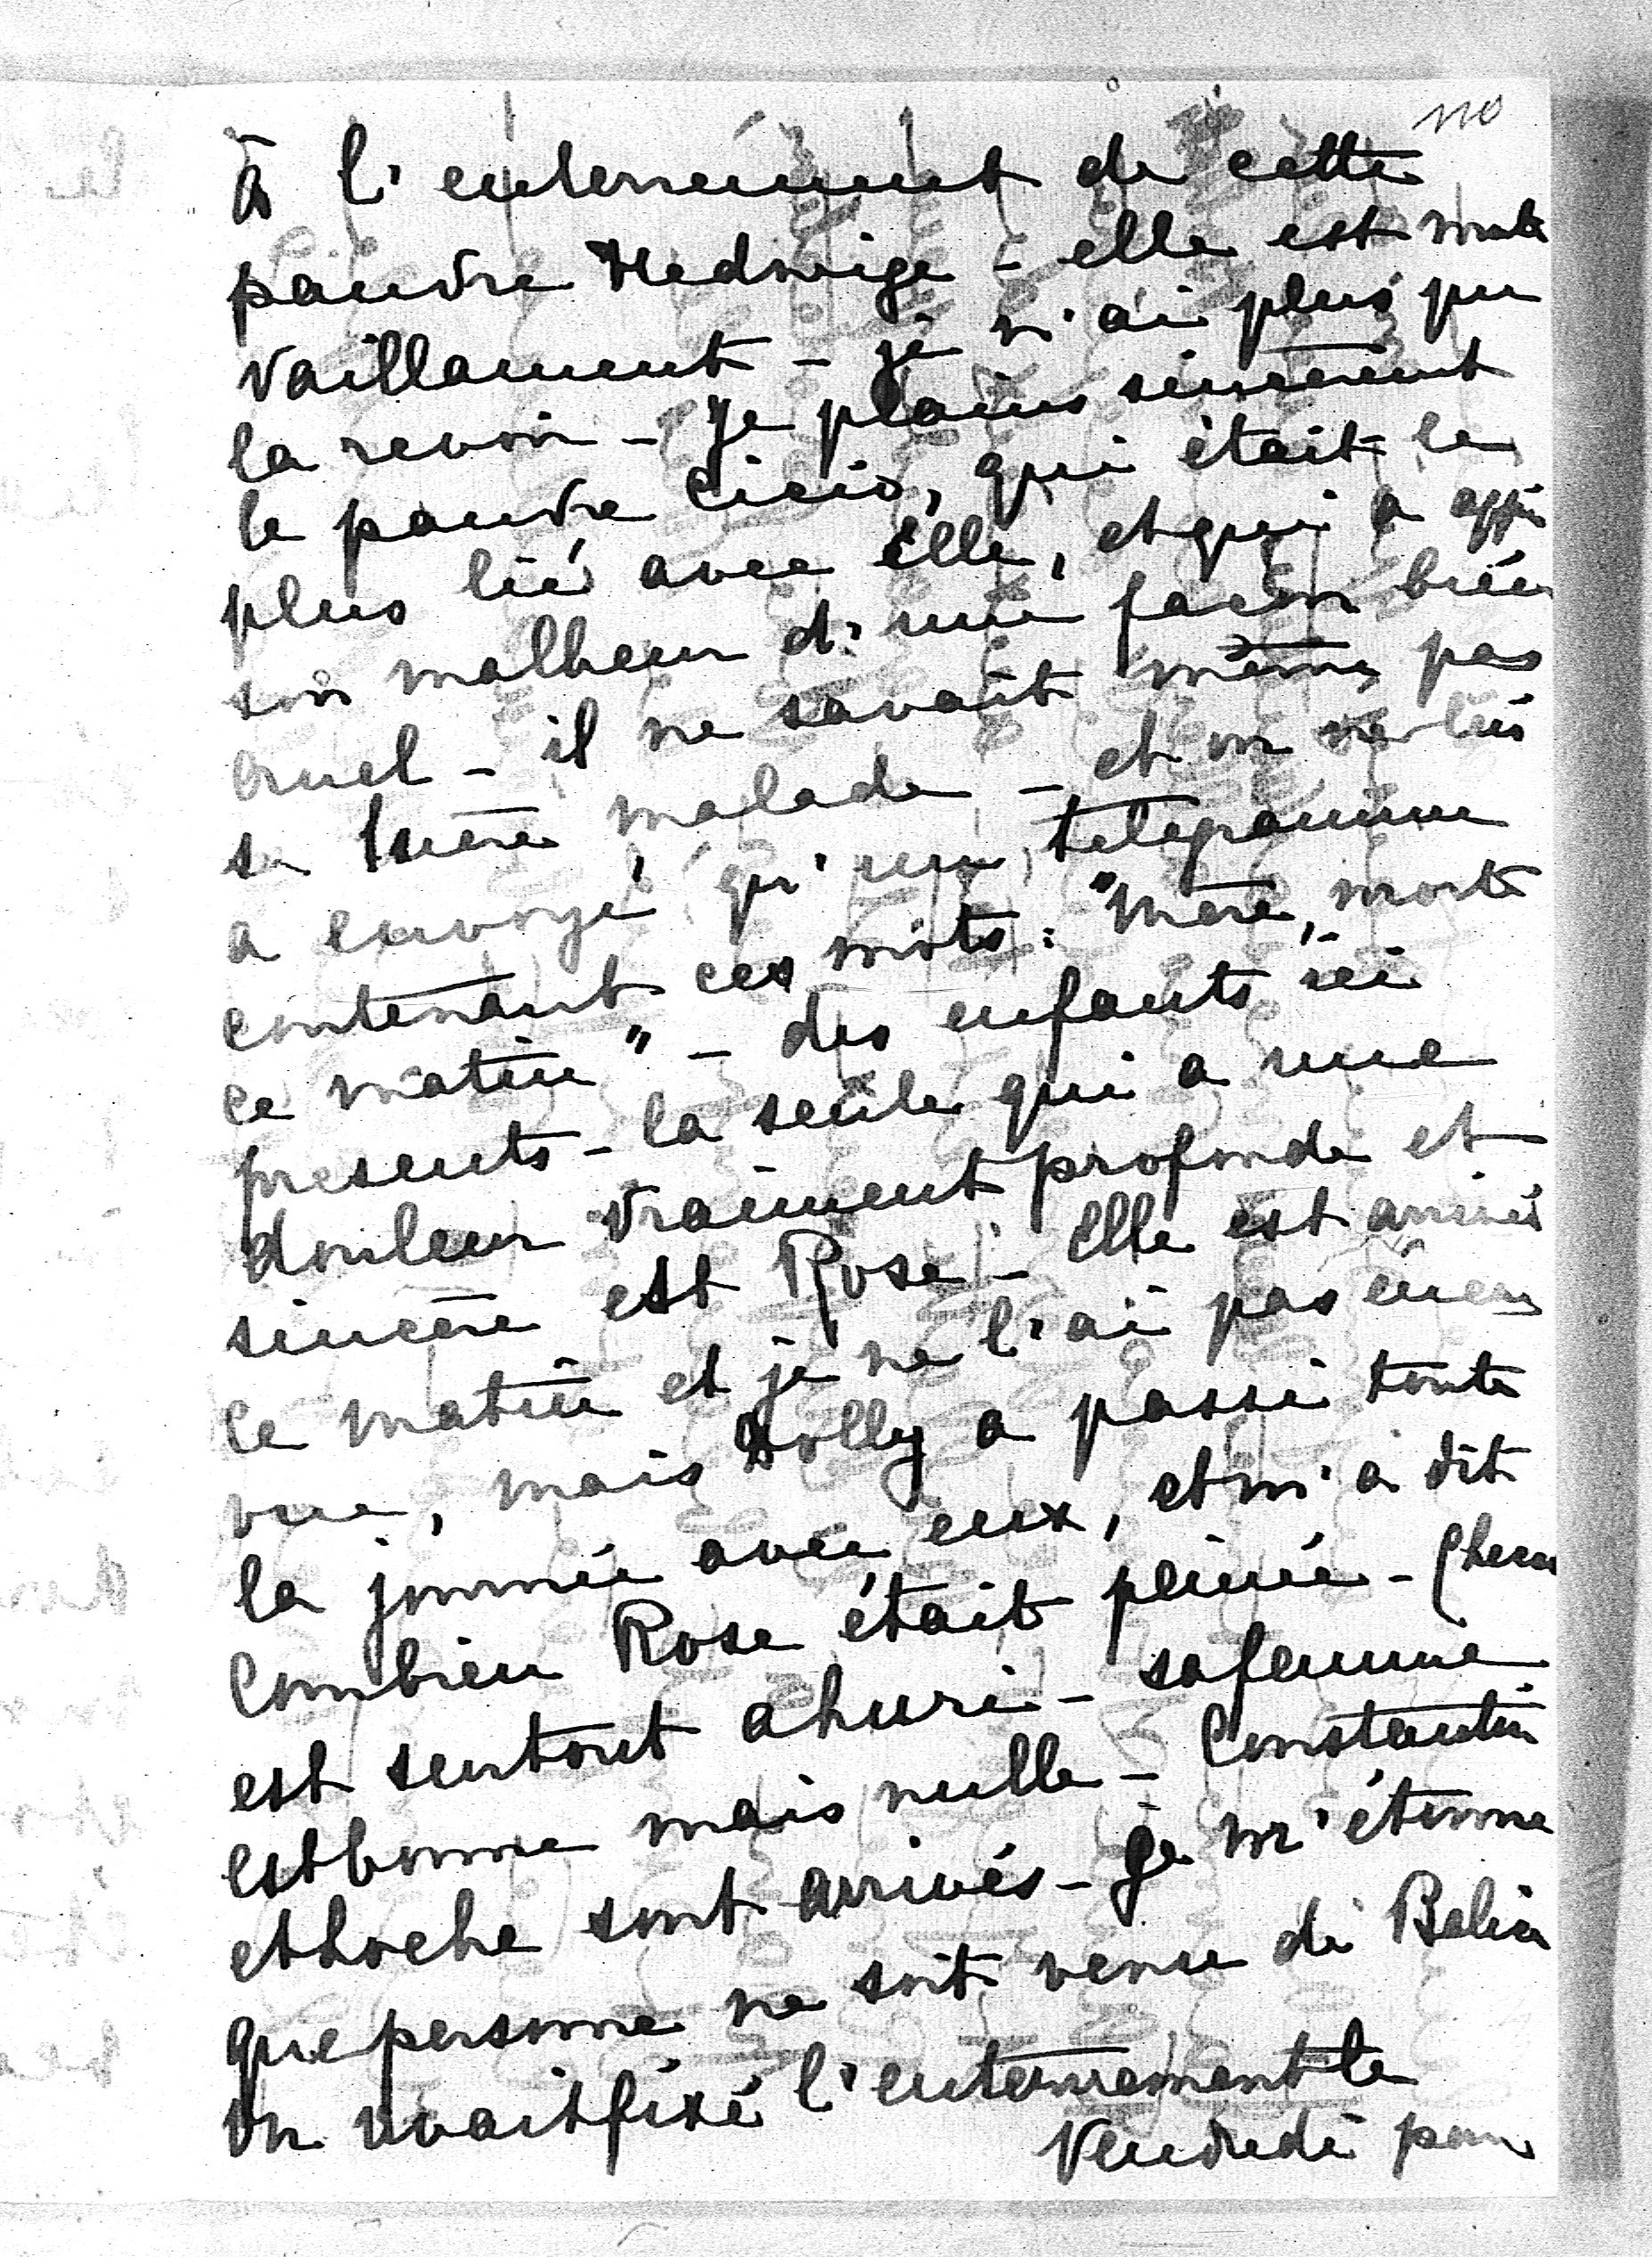 110
à l'enterrement de cette
pauvre Hedwige - elle est morte
vaillamment - je n'ai plus pu
la revoir - Je plains sincèrement
le pauvre Cicio, qui était le
plus lié avec elle, et qui a appris
son malheur d'une façon bien
cruel - il ne savait même pas
sa mère malade - et on ne lui
a envoyé qu'un télégramme
contenant ces mots: "Mère, morte
ce matin" - des enfants ici
presents - la seule qui a une
douleur vraiment profonde et
sincère est Rose - Elle est arrivée
ce matin et je ne l'ai pas encore
vue, mais Dolly a passé toute
la journée avec eux, et m'a dit
combien Rose était peinée -
est surtout ahuri - sa femme
est bonne mais nulle - Constantin
et Loche sont arrivés - Je m'étonne
que personne ne soit venu de
On avait fixé l'enterrement le
Vendredi pour